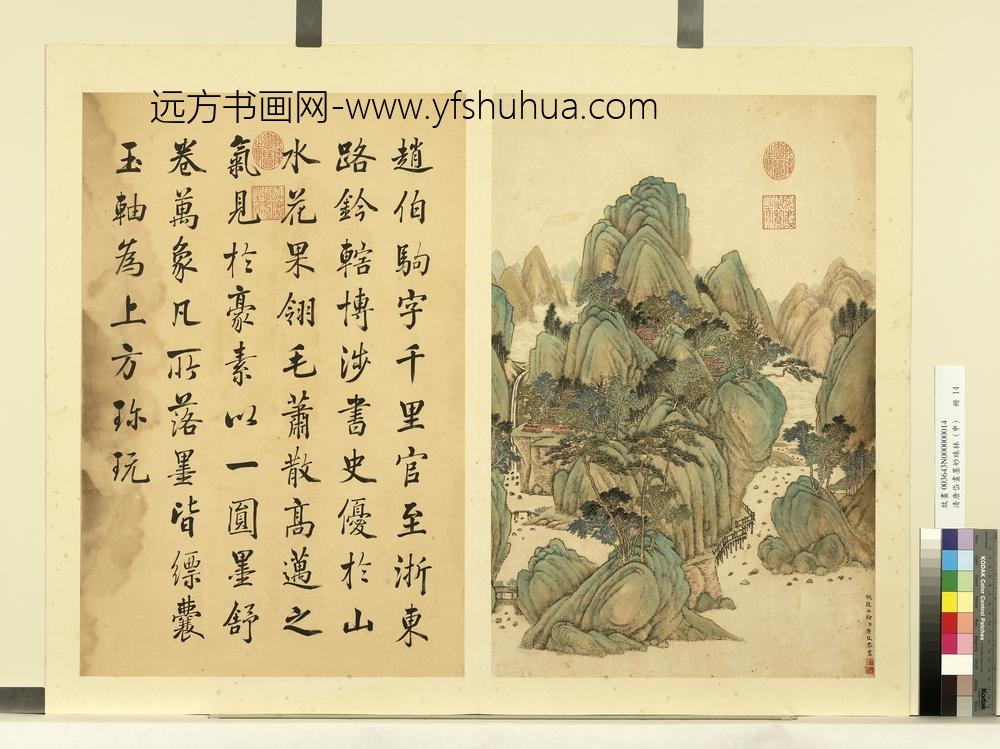 远方书画网-www.yfshuhua.com
趙伯駒字千里官至浙東
路鈐轄博涉書史優於山
水花果翎毛蕭散高邁之
氣見於豪素以一圓墨舒
卷萬象凡所落墨皆縹囊
玉軸為上方珎玩
故畫003643N000000014
清唐岱畫墨妙珠林(申) 冊 14
KODAK Color Control Patches
Kodak